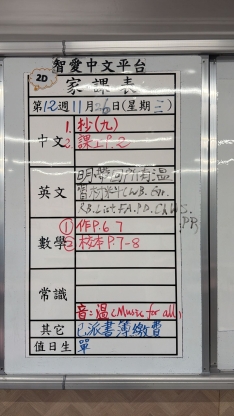 2D
智愛中文平台
家課表
第12週11月26日(星期三)
中文
1. 抄(九)
2. 課上P.2
英文
明帶回所有溫
數學
① 作P.6 7
② 校本P.7-8
常識
音:溫(Music for all)
其它
已派書簿繳費
值日生
單